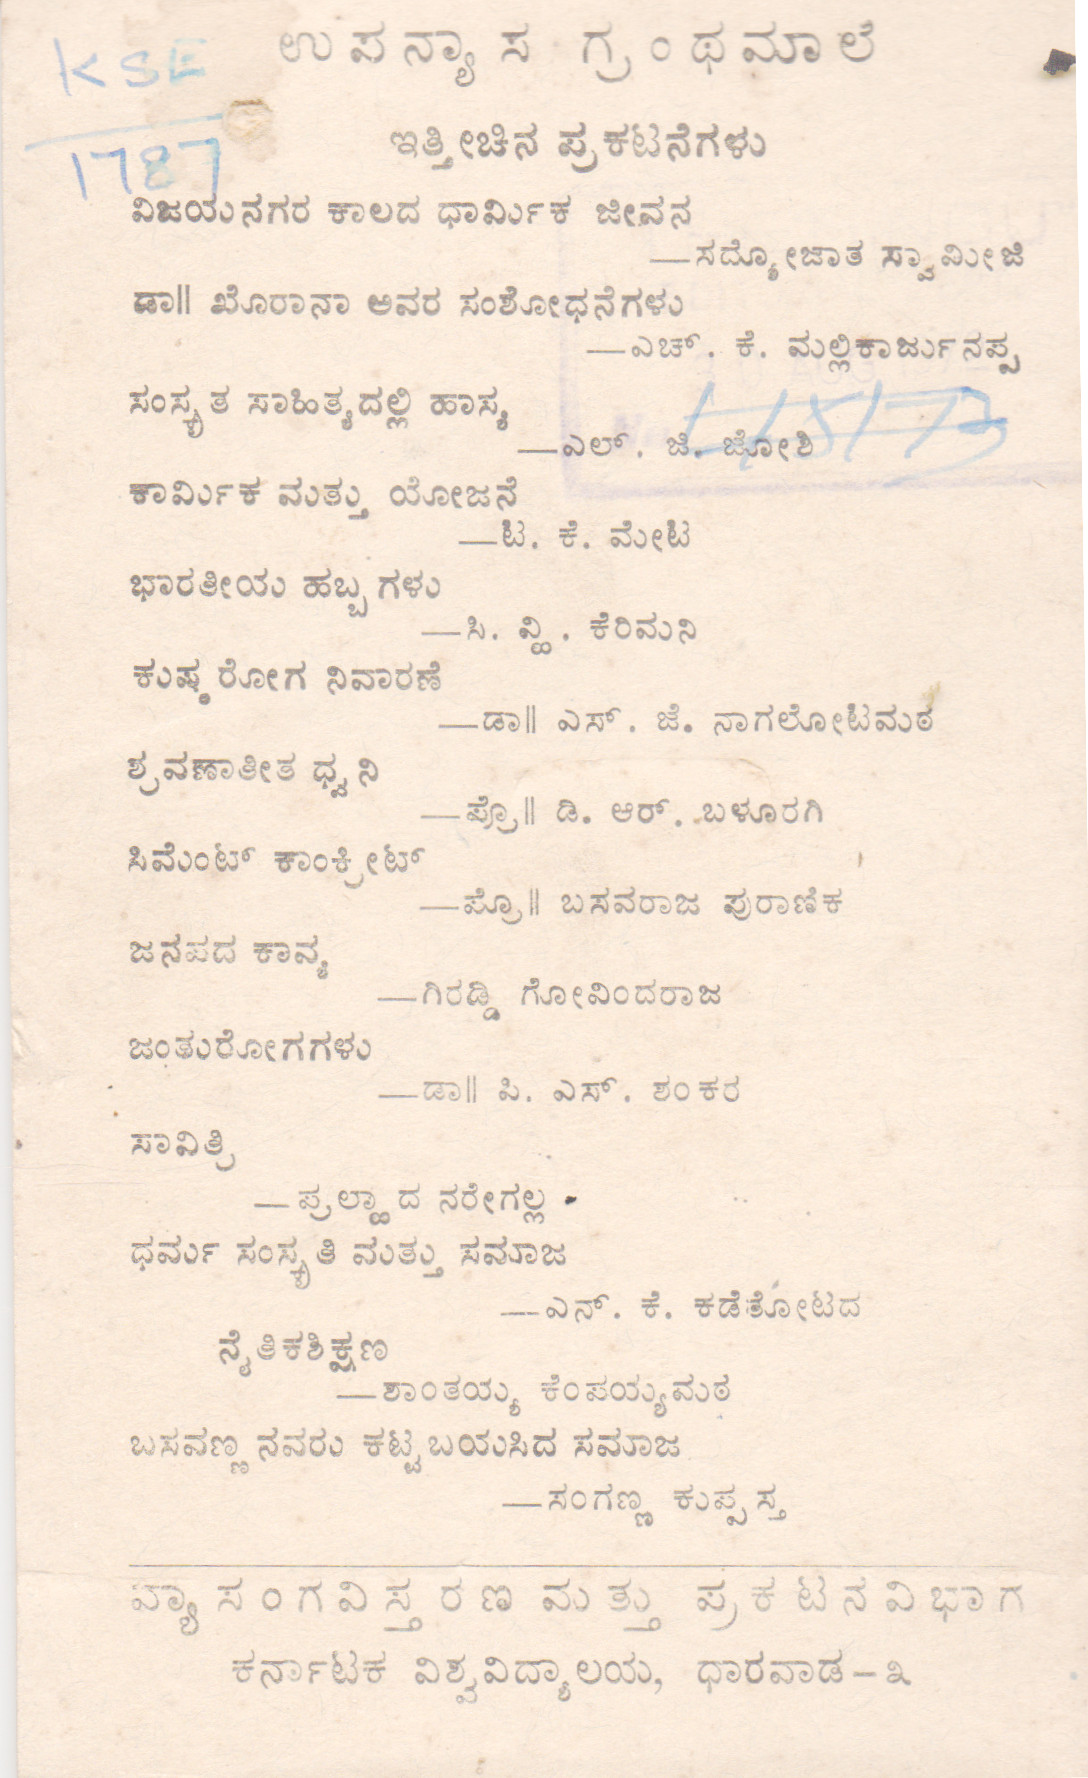 ಉಪನ್ಯಾಸ ಗ್ರಂಥಮಾಲೆ
KSE
1787
ಇತ್ತೀಚಿನ ಪ್ರಕಟನೆಗಳು
ವಿಜಯನಗರ ಕಾಲದ ಧಾರ್ಮಿಕ ಜೀವನ
—ಸದ್ಯೋಜಾತ ಸ್ವಾಮೀಜಿ
ಡಾ॥ ಖೊರಾನಾ ಅವರ ಸಂಶೋಧನೆಗಳು
—ಎಚ್. ಕೆ. ಮಲ್ಲಿಕಾರ್ಜುನಪ್ಪ
ಸಂಸ್ಕೃತ ಸಾಹಿತ್ಯದಲ್ಲಿ ಹಾಸ್ಯ
—ಎಲ್. ಜಿ. ಜೋಶಿ
ಕಾರ್ಮಿಕ ಮತ್ತು ಯೋಜನೆ
—ಟಿ. ಕೆ. ಮೇಟಿ
ಭಾರತೀಯ ಹಬ್ಬಗಳು
—ಸಿ. ವ್ಹಿ. ಕೆರಿಮನಿ
ಕುಷ್ಠರೋಗ ನಿವಾರಣೆ
—ಡಾ॥ ಎಸ್. ಜೆ. ನಾಗಲೋಟಿಮಠ
ಶ್ರವಣಾತೀತ ಧ್ವನಿ
—ಪ್ರೊ॥ ಡಿ. ಆರ್. ಬಳೂರಗಿ
ಸಿಮೆಂಟ್ ಕಾಂಕ್ರೀಟ್
—ಪ್ರೊ॥ ಬಸವರಾಜ ಪುರಾಣಿಕ
ಜನಪದ ಕಾವ್ಯ
—ಗಿರಡ್ಡಿ ಗೋವಿಂದರಾಜ
ಜಂತುರೋಗಗಳು
—ಡಾ॥ ಪಿ. ಎಸ್. ಶಂಕರ
ಸಾವಿತ್ರಿ
—ಪ್ರಲ್ಹಾದ ನರೇಗಲ್ಲ
ಧರ್ಮ ಸಂಸ್ಕೃತಿ ಮತ್ತು ಸಮಾಜ
—ಎನ್. ಕೆ. ಕಡೆತೋಟದ
ನೈತಿಕಶಿಕ್ಷಣ
—ಶಾಂತಯ್ಯ ಕೆಂಪಯ್ಯಮಠ
ಬಸವಣ್ಣನವರು ಕಟ್ಟಬಯಸಿದ ಸಮಾಜ
—ಸಂಗಣ್ಣ ಕುಪ್ಪಸ್ತ
ವ್ಯಾಸಂಗವಿಸ್ತರಣ ಮತ್ತು ಪ್ರಕಟನವಿಭಾಗ
ಕರ್ನಾಟಕ ವಿಶ್ವವಿದ್ಯಾಲಯ, ಧಾರವಾಡ–೩